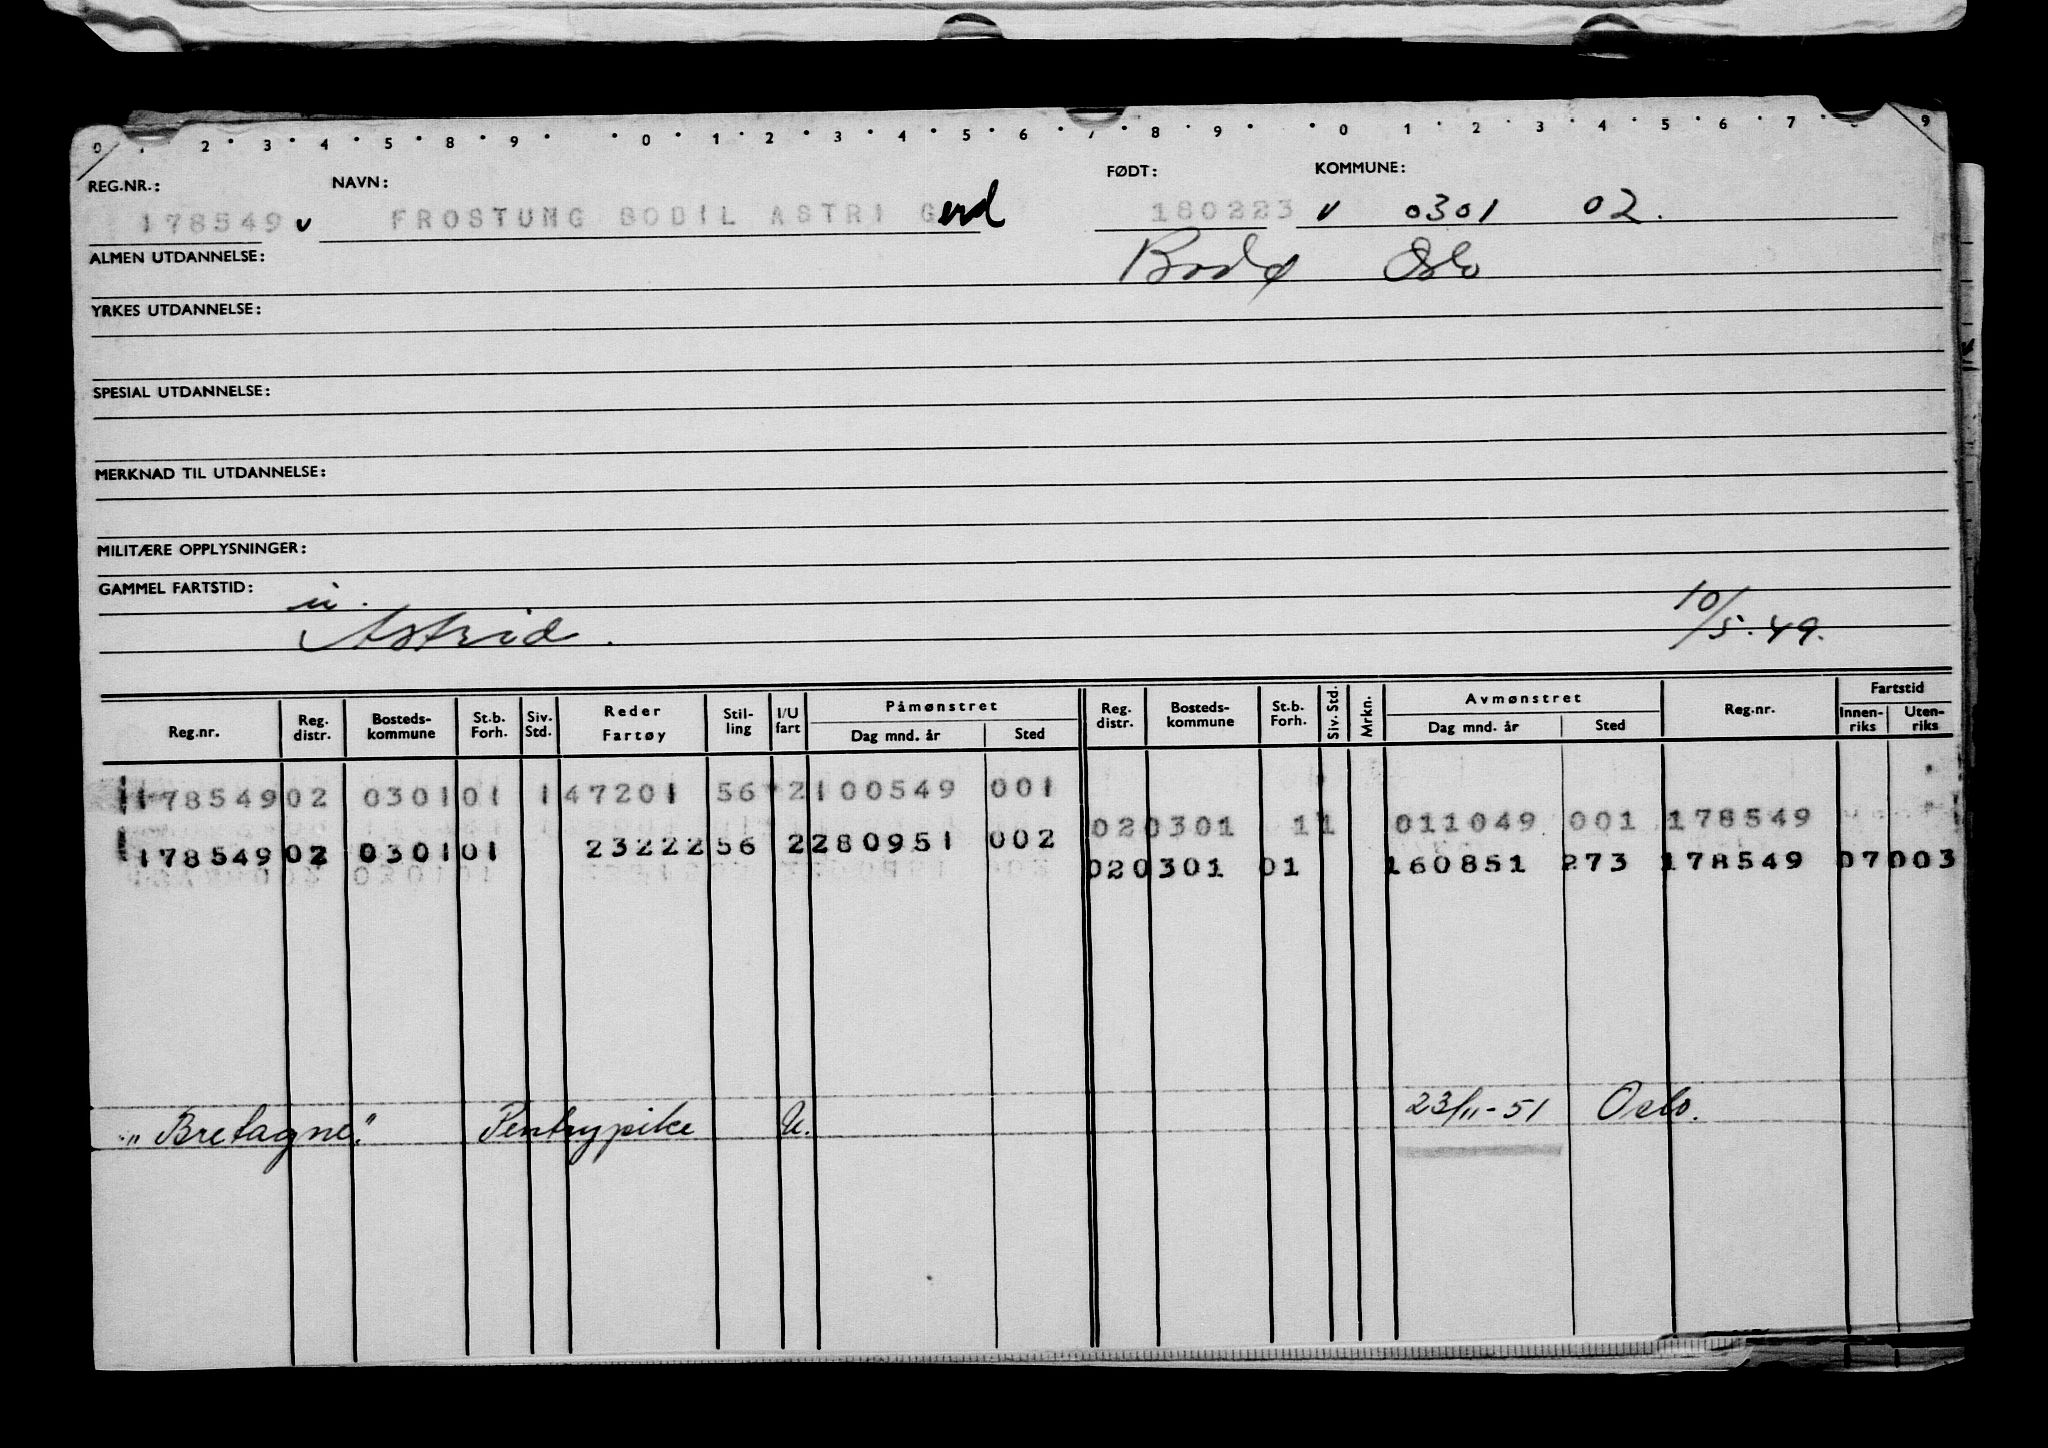 0 . 2 . 3 . 4 . 5 . 8 . 9 . . 0 . 1 . 2 . 3 . 4 . 5 . 6 . 7 . 8 . 9 . . 0 . 1 . 2 . 3 . 4 . 5 . 6 . 7 . 9
REG.NR.: NAVN: FØDT: KOMMUNE:
178549 v FROSTUNG BODIL ASTRI Gerd 180223 v 0301 02.
ALMEN UTDANNELSE: Bodø Oslo
YRKES UTDANNELSE:
SPESIAL UTDANNELSE:
MERKNAD TIL UTDANNELSE:
MILITÆRE OPPLYSNINGER:
GAMMEL FARTSTID:
Astrid. 10/5.49.
Reg.nr. Reg. distr. Bosteds-kommune St.b. Forh. Siv. Std. Reder Fartøy Stil-ling I/U fart Påmønstret Dag mnd. år Sted Reg. distr. Bosteds-kommune St.b. Forh. Siv. Std. Mrkn. Avmønstret Dag mnd. år Sted Reg.nr. Fartstid Innen-riks Uten-riks
178549 02 0301 01 1 47201 56 2 100549 001
02 0301 11 011049 001 178549
178549 02 0301 01 23222 56 2 280951 002
02 0301 01 160851 273 178549 07 003
"Bretagne" Pentrypike U. 23/11-51 Oslo.